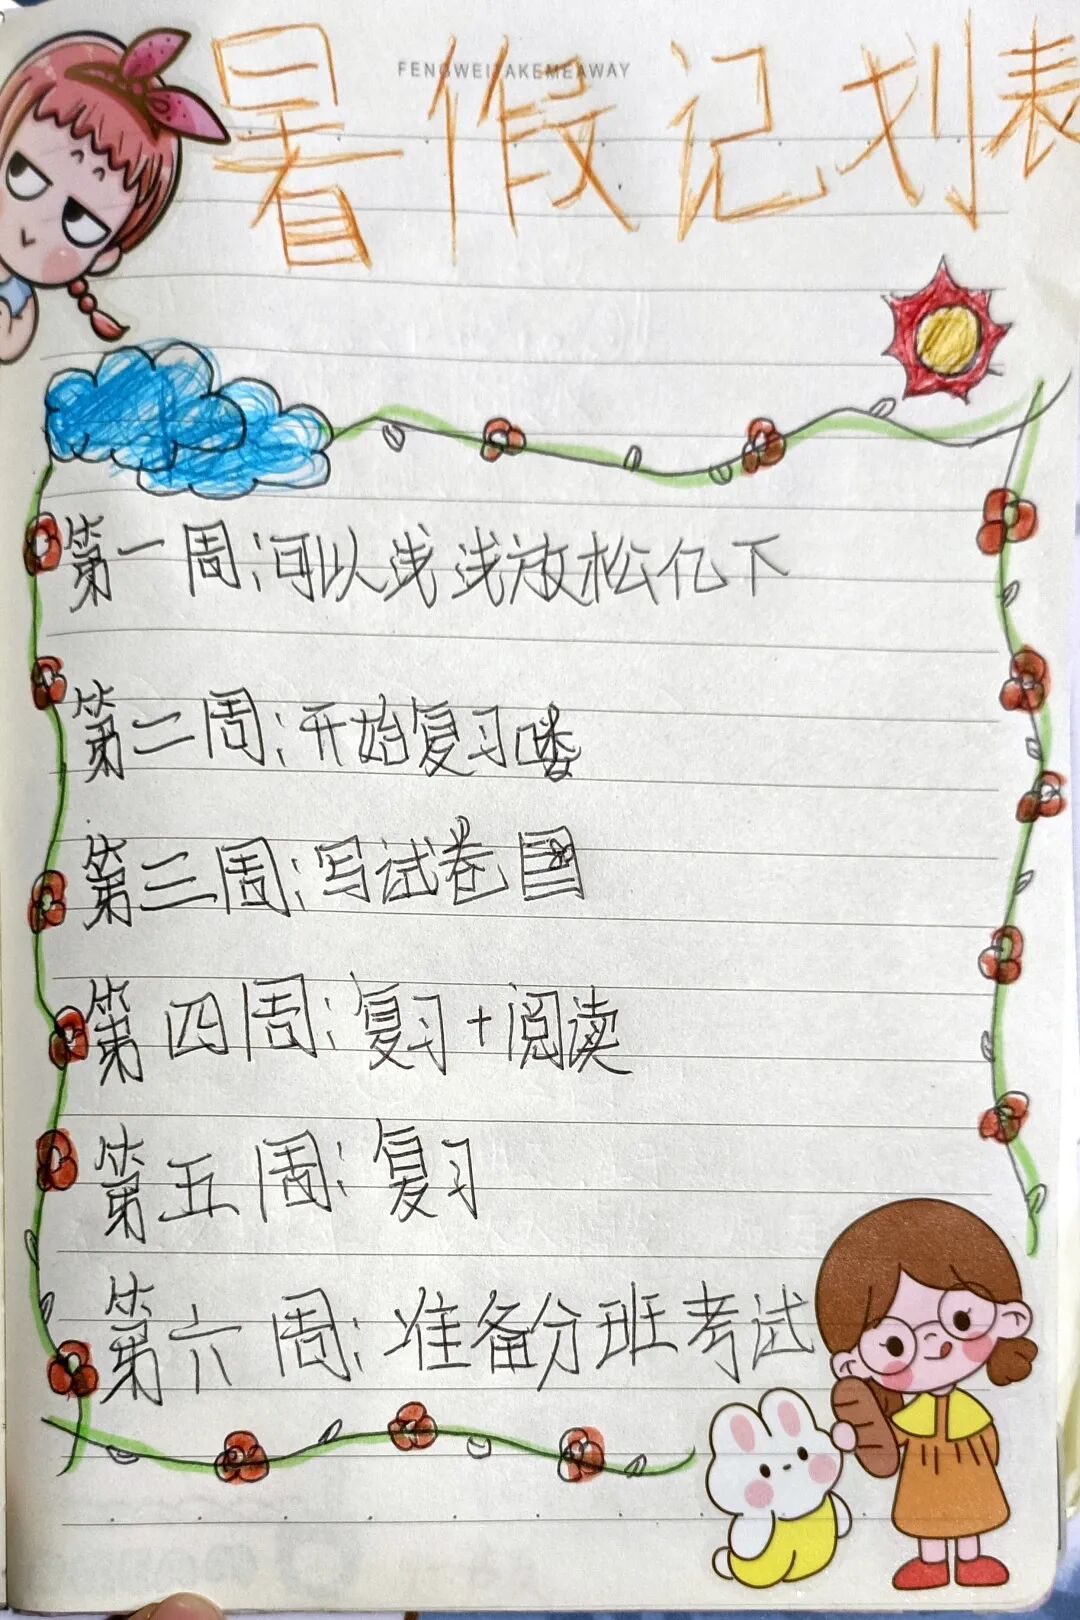 FENGWEITAKEMEAWAY
暑假记划表
第一周:可以浅浅放松亿下
第二周:开始复习喽
第三周:写试卷
第四周:复习+阅读
第五周:复习
第六周:准备分班考试